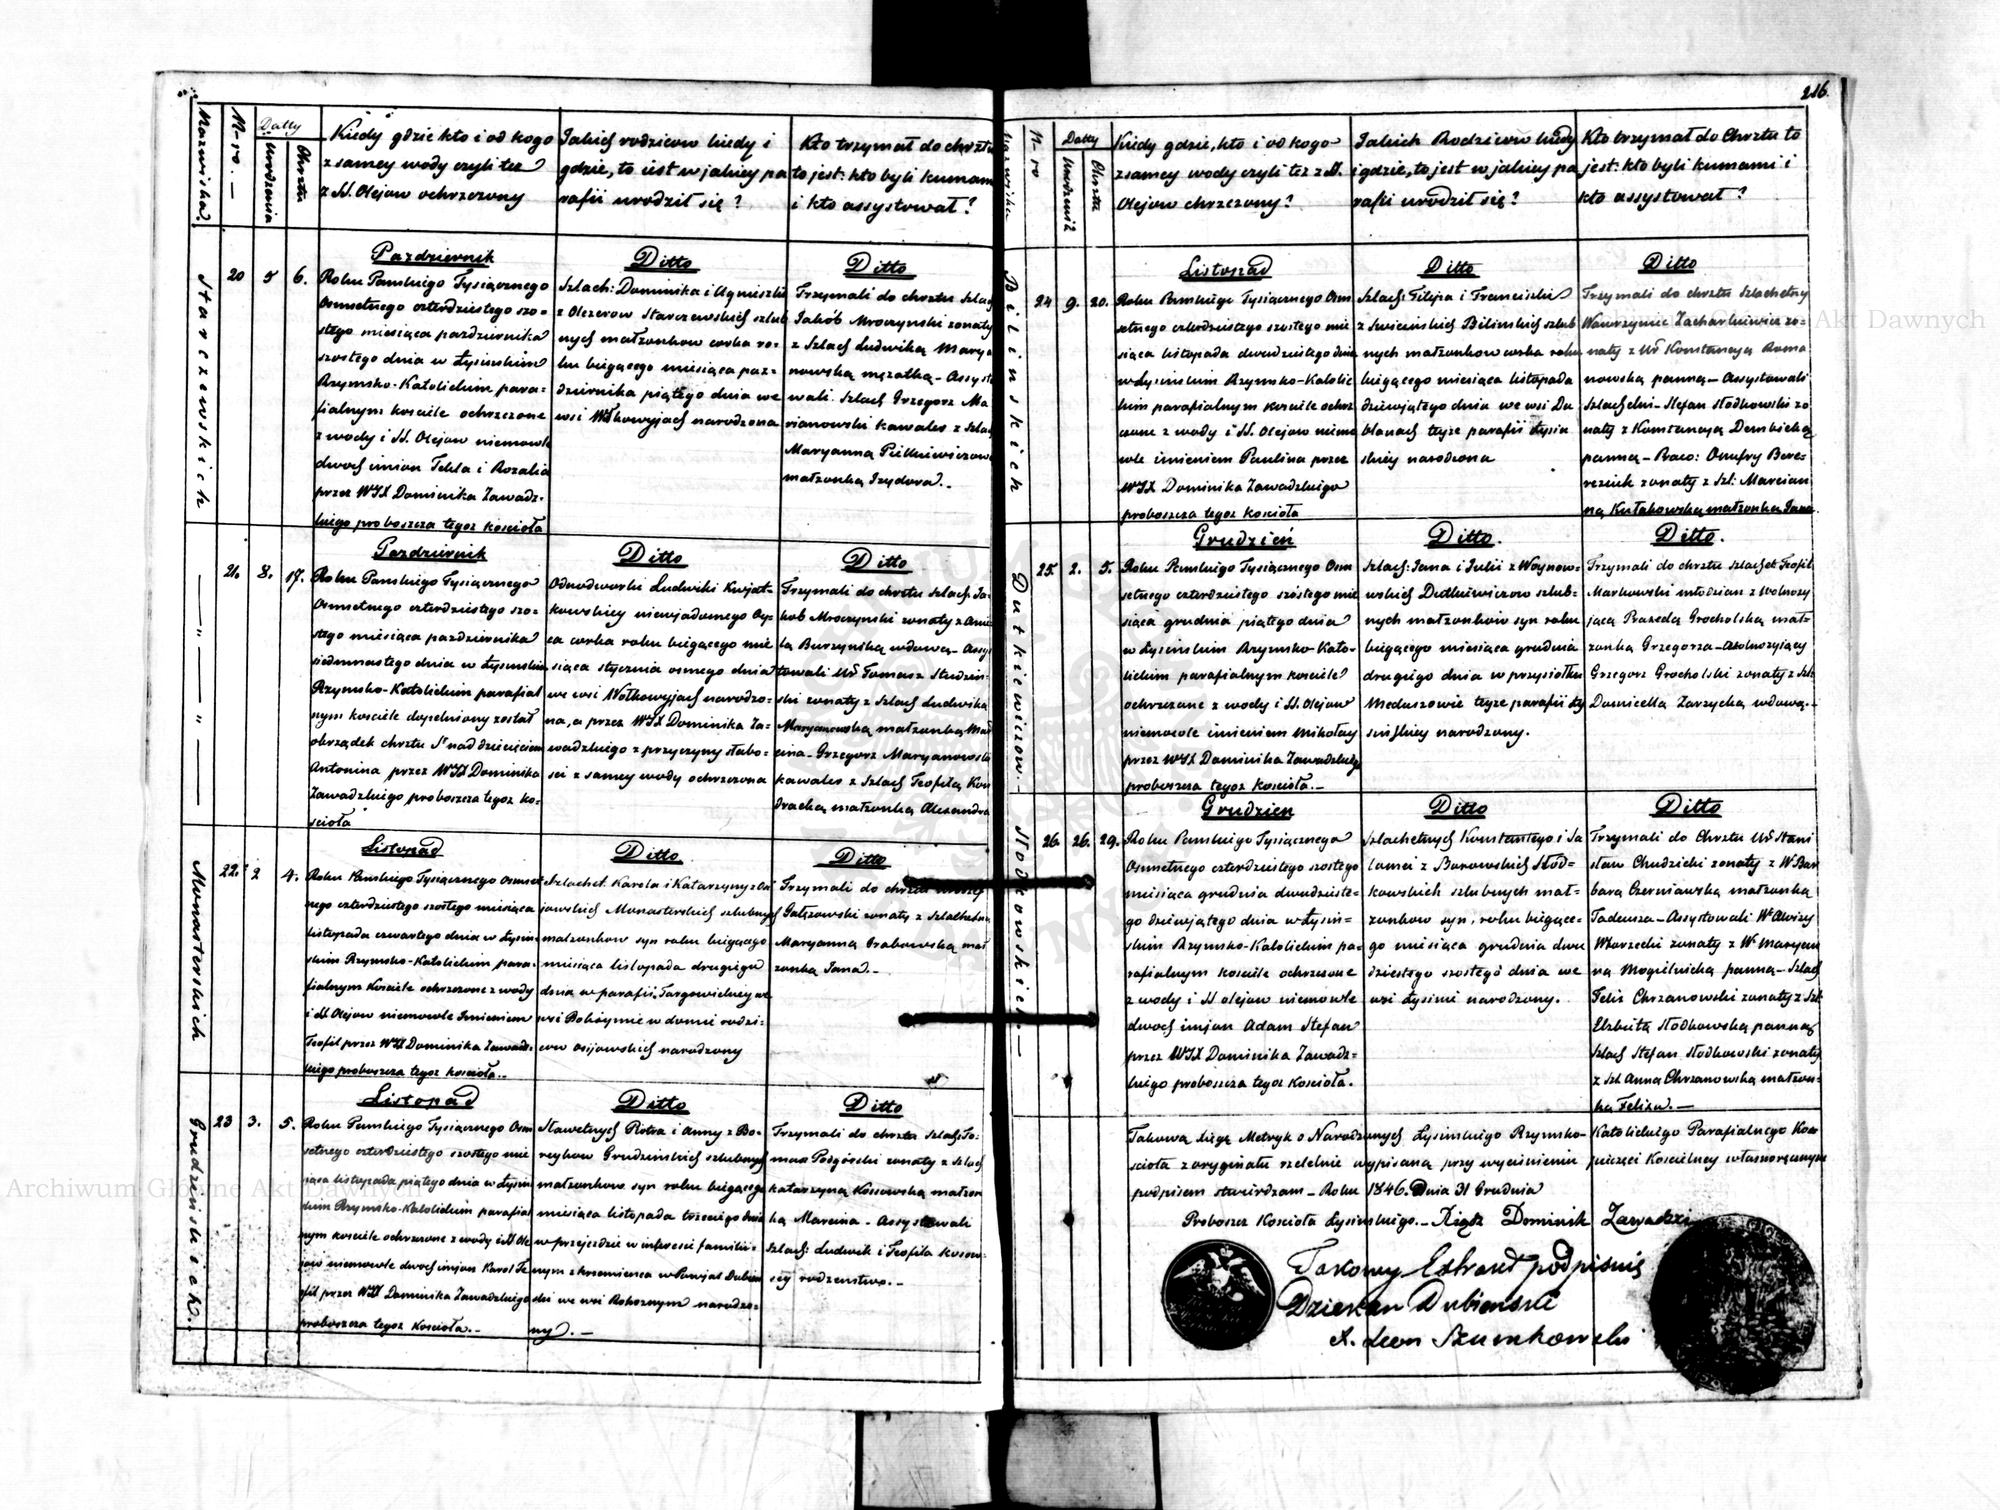 216.
Nazwiska
N-ro. —
Datty
Urodzenia
Chrztu
Kiedy gdzie kto i od kogo
z samey wody czyli też
z SS. Olejow ochrzczony
Jakich rodzicow kiedy i
gdzie, to iest w jakiey pa
rafii urodził się?
Kto trzymał do chrztu
to jest: kto byli kumami
i kto assystował?
Starczewskich
20
5
6.
Pazdziernik
Roku Panskiego Tysiącznego
Osmsetnego czterdziestego szo-
stego miesiąca pazdziernika
szostego dnia w Łysinskim
Rzymsko-Katolickim para-
fialnym kosciele ochrzczone
z wody i SS. Olejow niemowle
dwoch imion Tekla i Rozalia
przez WJX Dominika Zawadz-
kiego proboszcza tegoż kościoła
Ditto
Szlach: Dominika i Agnieszki
z Olszerow Starczewskich szlub
nych małzonkow corka ro-
ku biegącego miesiąca paz-
dziernika piątego dnia we
wsi Wołkowyjach narodzona
Ditto
Trzymali do chrztu Szlach
Jakób Mroczynski zonaty
z Szlach Ludwiką Marya
nowską męzatką - Assysto
wali. Szlach Grzegorz Ma
rianowski kawaler z Szlach
Maryanną Pietkiewiczową
małzonką Izydora. -
— „ — „ —
21.
8.
17.
Pazdziernik
Roku Panskiego Tysiącznego
Osmsetnego czterdziestego szo-
stego miesiąca pazdziernika
siedemnastego dnia w Łysinskim
Rzymsko-Katolickim parafial
nym kosciele dopełniony został
obrządek chrztu St nad dziecięciem
Antonina przez WJX Dominika
Zawadzkiego proboszcza tegoz ko-
scioła
Ditto
Odnodworki Ludwiki Kwjat-
kowskiey niewjadomego Oy-
ca corka roku biegącego mie
siąca stycznia osmego dnia
we wsi Wołkowyjach narodzo-
na, a przez WJX Dominika Za-
wadzkiego z przyczyny słabo-
sci z samey wody ochrzczona
Ditto
Trzymali do chrztu Szlach: Ja-
kob Mroczynski zonaty z
Burzynską wdową - Assys
towali Ur Tomasz Studzin-
ski zonaty z Szlach Ludwiką
Maryanowską małzonką Mar
cina - Grzegorz Maryanowski
kawaler z Szlach Teofilą Kon
dracką małzonką Alexandra
Monasterskich
22.
2
4.
Listopad
Roku Panskiego Tysiącznego Osmset
nego czterdziestego szostego miesiąca
listopada czwartego dnia w Łysin-
skim Rzymsko-Katolickim para-
fialnym Kosciele ochrzczone z wody
i SS. Olejow niemowle Imieniem
Teofil przez WJX Dominika Zawadz-
kiego proboszcza tegoz koscioła. -
Ditto
Szlachet. Karola i Katarzyny z Osi
jowskich Monasterskich szlubnych
małzonkow syn roku biegącego
miesiąca listopada drugiego
dnia w parafii Targowickiey we
wsi Bokóymie w domie rodzi-
cow osijowskich narodzony
Ditto
Trzymali do chrztu
Gałzowski zonaty z Szlachetną
Maryanną Grabowską mał
zonką Jana. -
Grudzinskich.
23
3.
5.
Listopad
Roku Panskiego Tysiącznego Osm
setnego czterdziestego szostego mie
siąca listopada piątego dnia w Łysin
skim Rzymsko-Katolickim parafial
nym kosciele ochrzczone z wody i SS Ole
jow niemowle dwoch imjon Karol Te
ofil przez WJX Dominika Zawadzkiego
proboszcza tegoz Koscioła. -
Ditto
Sławetnych Piotra i Anny z Bo-
reykow Grudzinskich szlubnych
małzonkow syn roku biegącego
miesiąca listopada trzeciego dnia
w przejezdzie w interesie familij-
nym z krzemienca w Powjat Dubien
ski we wsi Rohoznym narodzo-
ny. -
Ditto
Trzymali do chrztu Szlach: To-
masz Podgórski zonaty z Szlach
Katarzyną Kossowską małzon
ką Marcina - Assystowali
Szlach: Ludwik i Teofila Kosow-
scy rodzenstwo. -
Nazwiska
N-ro
Datty
Urodzenia
Chrztu
Kiedy gdzie, kto i od kogo
z samey wody czyli tez z SS.
Olejow chrzczony?
Jakich Rodzicow kiedy
i gdzie, to jest w jakiey pa
rafii urodził się?
Kto trzymał do Chrztu to
jest: kto byli kumami i
kto assystował?
Bilinskich
24
9.
20.
Listopad
Roku Panskiego Tysiącznego Osm
setnego czterdziestego szostego mie
siąca listopada dwudziestego dnia
w Łysinskim Rzymsko-Katolic
kim parafialnym kosciele ochrz
czone z wody i SS. Olejow niemo
wle imieniem Paulina przez
WJX Dominika Zawadzkiego
proboszcza tegoz Koscioła
Ditto
Szlach: Filipa i Franciszki
z Swiecinskich Bilinskich szlub
nych małzonkow corka roku
biegącego miesiąca listopada
dziewjątego dnia we wsi Du
blanach teyze parafii Łysin
skiey narodzona
Ditto
Trzymali do chrztu Szlachetny
Wawrzyniec Zacharkiewicz zo-
naty z Ur Konstancyą Roma
nowską panną - Assystowali
Szlachetni - Stefan Słodkowski zo
naty z Konstancyą Dembicką
panną - Praco: Onufry Bere-
zeziuk zonaty z Szl: Marcian
ną Kułakowską małzonką Jana.
Dutkiewiczow. -
25.
2.
5.
Grudzień
Roku Panskiego Tysiącznego Osm
setnego czterdziestego szóstego mie
siąca grudnia piątego dnia
w Łysinskim Rzymsko-Kato-
lickim parafialnym kosciele
ochrzczone z wody i SS. Olejow
niemowle imieniem Mikołay
przez WJX Dominika Zawadzkiego
proboszcza tegoz Koscioła. -
Ditto.
Szlach: Jana i Julii z Woynow-
skich Dutkiewiczow szlub-
nych małzonkow syn roku
biegącego miesiąca grudnia
drugiego dnia w przysiołku
Meduszowie teyze parafii Ły
sinskiey narodzony.
Ditto.
Trzymali do chrztu Szlachet Teofil
Markowski młodzian z Wolnozy
jącą Prazedą Grocholską mał-
zonką Grzegorza - Wolnozyiący
Grzegorz Grocholski zonaty z Szl:
Domicellą Zarzycką wdową. -
Słodkowskich. -
26.
26.
29.
Grudzien
Roku Panskiego Tysiącznego
Osmsetnego czterdziestego szostego
miesiąca grudnia dwudzieste-
go dziewjątego dnia w Łysin-
skim Rzymsko-Katolickim pa-
rafialnym kosciele ochrzczone
z wody i SS olejow niemowle
dwoch imjon Adam Stefan
przez WJX Dominika Zawadz-
kiego proboszcza tegoz Koscioła.
Ditto
Szlachetnych Konstantego i Sa
lomei z Barowskich Słod-
kowskich szlubnych mał-
zonkow syn, roku biegące-
go miesiąca grudnia dwu
dziestego szostego dnia we
wsi Łysinie narodzony.
Ditto
Trzymali do Chrztu Ur Stani
sław Chudzicki zonaty z Wr Bar
barą Czerniawską małzonką
Tadeusza - Assystowali Wr Aloizy
Wtorzecki zonaty z Wr Maryan
ną Mogilnicką panną - Szlach
Felix Chrzanowski zonaty z Szl
Elzbietą Słodkowską panną
Szlach Stefan Słodkowski zonaty
z Szl Anną Chrzanowską małzon-
ką Felixa. -
Takową xięgę Metryk o Narodzonych Łysinskiego Rzymsko-Katolickiego Parafialnego Kos-
scioła z oryginału rzetelnie wypisaną przy wyciśnieniu pieczęci Koscielney własnoręcznym
podpisem stwierdzam - Roku 1846. Dnia 31 Grudnia
Proboszcz Koscioła Łysinskiego. - Xiądz Dominik Zawadzki
Takowy Extrakt podpisuię
Dziekan Dubienski
X. Leon Szumkowski
Archiwum Główne Akt Dawnych
Archiwum Główne Akt Dawnych